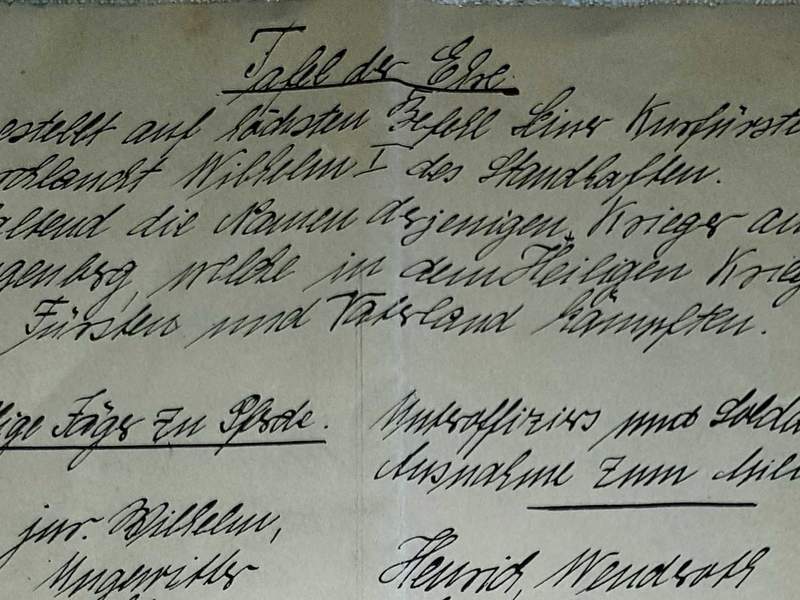 Tafel der Ehre.
estellt auf höchsten Befehl Seiner Kurfürstl
rchlaucht Wilhelm I des Standhaften.
altend die Namen derjenigen Krieger au
genberg, welche in dem Heiligen Krieg
Fürsten und Vaterland kämpften.
lige Jäger zu Pferde.
Unteroffiziers und Solda
Ausnahme zum Mili
jur. Wilhelm,
Ungewitter
Henrich, Wendroth